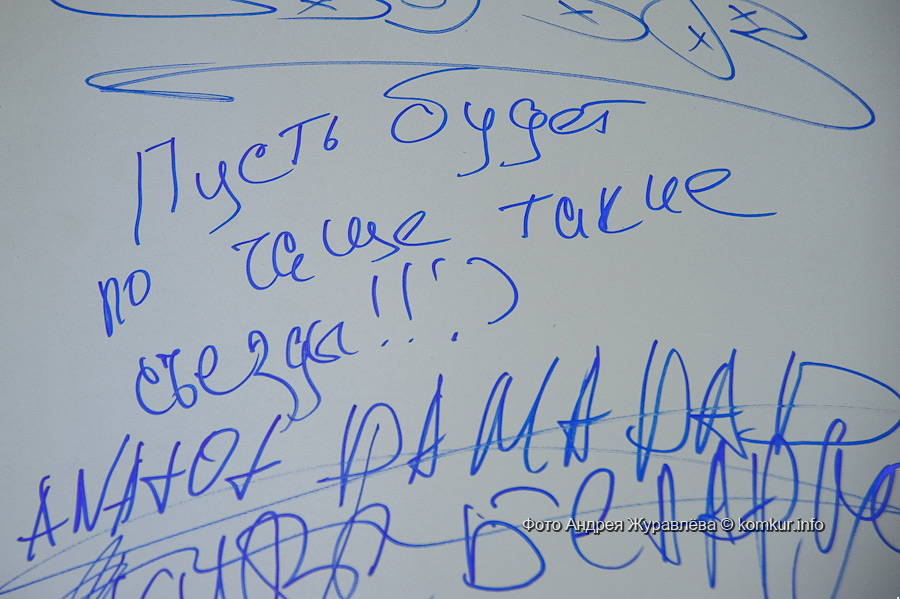 Пусть будет
по чаще такие
съезды!!!)
ANATOL РАМАРАР
БЕЛАРУС
Фото Андрея Журавлёва © komkur.info